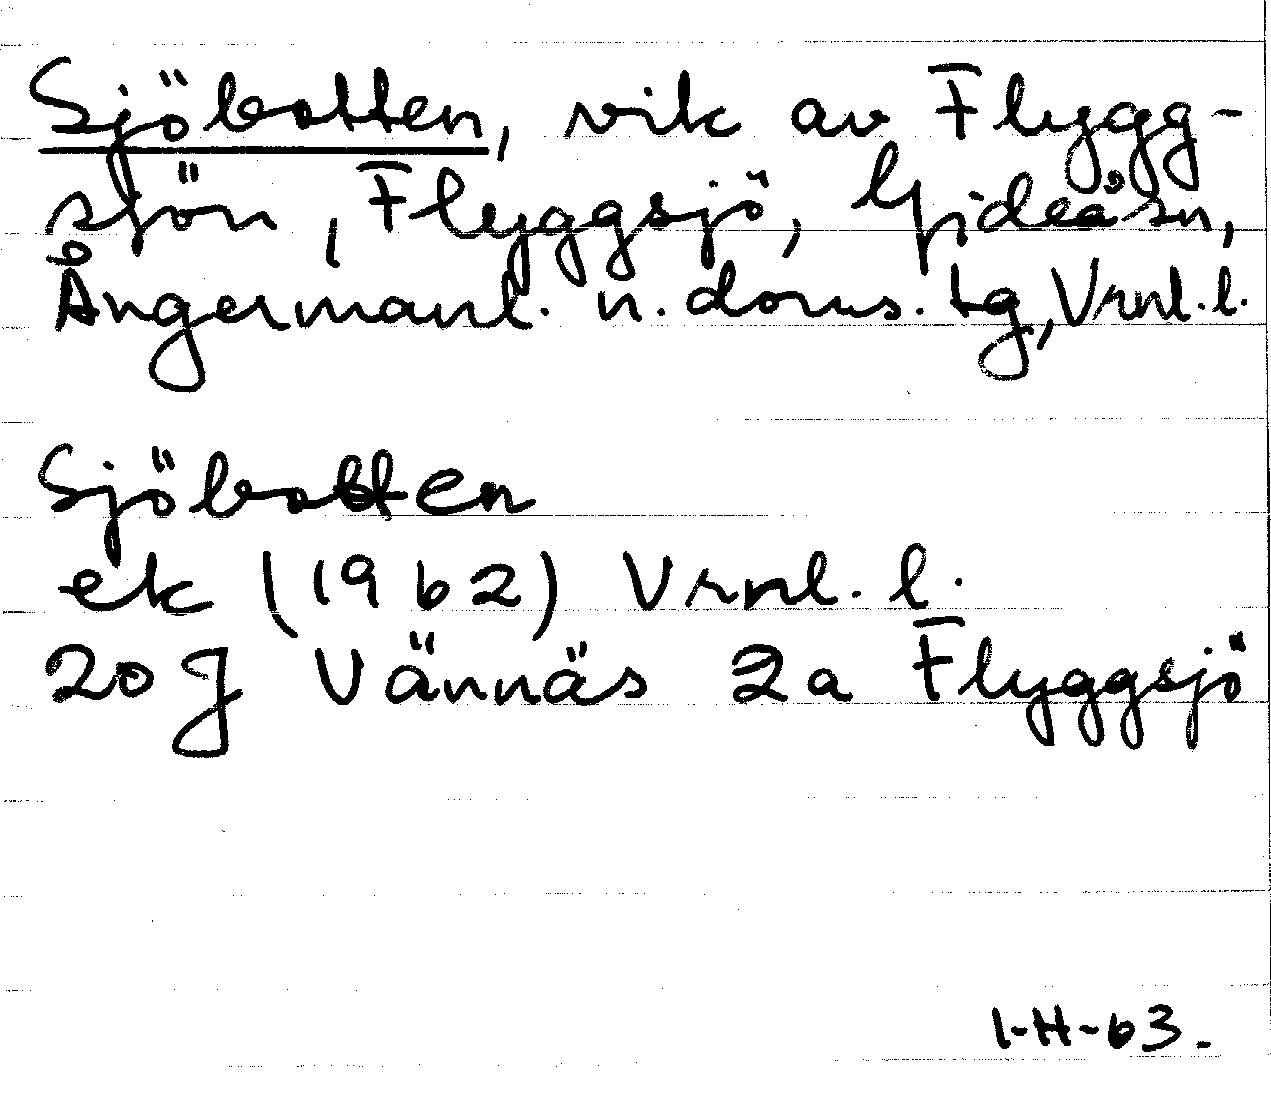 Sjöbotten, vik av Flygg-
sjön, Flyggsjö, Gideå sn,
Ångermanl. n. doms. tg, Vrnl. l.
Sjöbotten
ek (1962) Vrnl. l.
20J Vännäs 2a Flyggsjö
1-H-63.